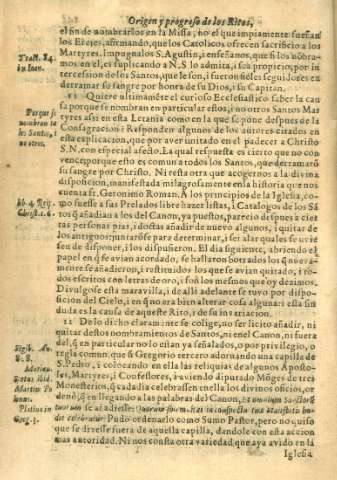 Origen y progreso de los Ritos,
el fin de nombrarlos en la Missa, no el que impiamente sueñan
los Erejes, afirmando, que los Catolicos ofrecen sacrificio a los
Martyres. Impugnalos S. Agustin, i enseñanos, que si los nõbra-
mos en el, es suplicando a N. S. lo admita, i sea propicio, por in-
tercession de los Santos, que le son, i fueron fieles seguidores en
derramar su sangre por honra de su Dios, i su Capitan.
Tract. 84.
in Ioan.
Quiere ultimamẽte el curioso Eclesiastico saber la cau
sa porque se nombran en particular estos, i no otros Santos Mar
tyres assi en esta Letania como en la que se pone despues de la
Consagracion? Responden algunos de los autores citados en
esta explicacion, que por aver imitado en el padecer a Christo
S. N. con especial afecto. La qual respuesta es cierto que no con
vence, porque esto es comun a todos los Santos, que derramarõ
su sangre por Christo. Ni resta otra que acogernos a la divina
disposicion, manifestada milagrosamente en la historia que nos
cuenta fr. Geronimo Roman. A los principios de la Iglesia, co-
mo fuesse a sus Prelados libre hazer listas, i Catalogos de los Sã
tos q̃ añadian a los del Canon, ya puestos, parecio despues a cier
tas personas pias, i doctas añadir de nuevo algunos, i quitar de
los antiguos; juntarõse para determinar, i ser a los quales se uvies
sen de disponer, i los dispusieron. El dia siguiente, abriendo el
papel en q̃ se avian acordado, se hallaron borrados los q̃ nueva-
mente se añadieron, i restituidos los que se avian quitado, i to-
dos escritos con letras de oro, i son los mesmos que oy dezimos.
Divulgose esta maravilla, i de alli adelante se tuvo por dispo-
sicion del Cielo, i en q̃ no era bien alterar cosa alguna: i esta sin
duda es la causa de aqueste Rito, i de su invariacion.
Porque se
nombran es
tos Santos, i
no otros.
lib. 4. Rep.
Christ. c. 6.
De lo dicho claramente se colige, no ser licito añadir, ni
quitar destos nombramientos de Santos, ni en el Canon, ni fuera
del, q̃ en particular no lo estan ya señalados, o por privilegio, o
regla comun. que si Gregorio tercero adornando una capilla de
S. Pedro, i colocando en ella las reliquias de algunos Aposto-
les, Martyres, i Confessores, i aviendo diputado Mõges de tres
Monesterios, q̃ cada dia celebrassen en ella los divinos oficios, or
denò, q̃ en llegando a las palabras del Canon,
se añadiesse:
Pudo ordenarlo como Sumo Pastor, pero no quiso,
que se dixesse fuera de aquella capilla, dandole con esta accion
mas autoridad. Ni nos consta otra variedad que aya avido en la
Platina in
Greg. 3.
Iglesia